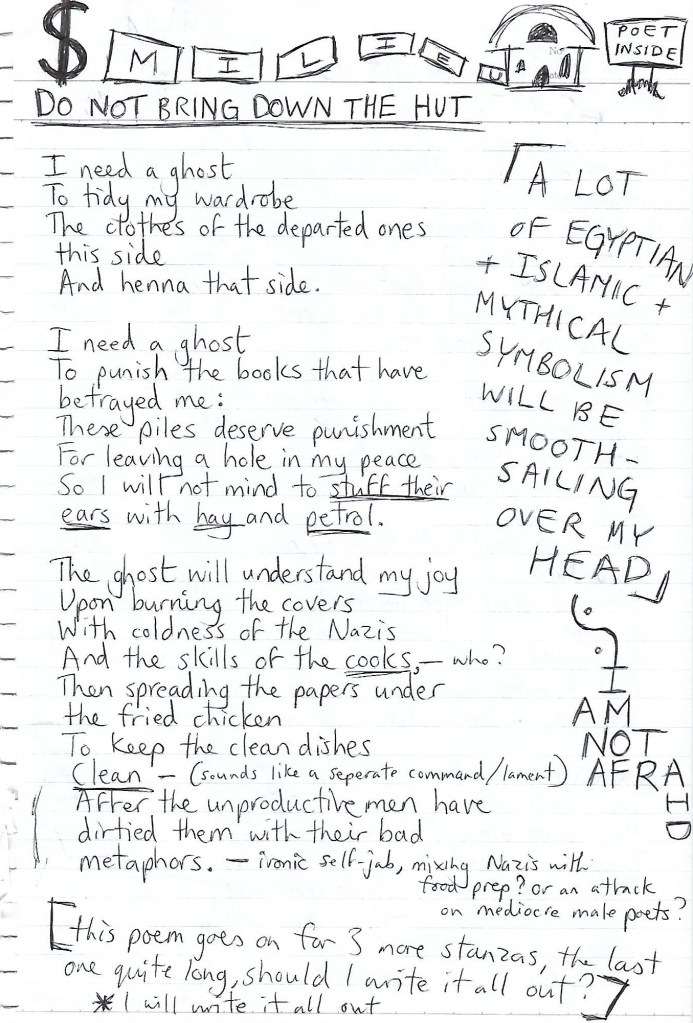 $ MILIEU
POET
INSIDE
DO NOT BRING DOWN THE HUT
I need a ghost
To tidy my wardrobe
The clothes of the departed ones
this side
And henna that side.
I need a ghost
To punish the books that have
betrayed me:
These piles deserve punishment
For leaving a hole in my peace
So I will not mind to stuff their
ears with hay and petrol.
The ghost will understand my joy
Upon burning the covers
With coldness of the Nazis
And the skills of the cooks, — who?
Then spreading the papers under
the fried chicken
To keep the clean dishes
Clean — (sounds like a seperate command/lament)
After the unproductive men have
dirtied them with their bad
metaphors. — ironic self-jab, mixing Nazis with
food prep? or an attack
on mediocre male poets?
「A LOT
OF EGYPTIAN
+ ISLAMIC +
MYTHICAL
SYMBOLISM
WILL BE
SMOOTH-
SAILING
OVER MY
HEAD」
I
AM
NOT
AFRAID
[this poem goes on for 3 more stanzas, the last
one quite long, should I write it all out?]
* I will write it all out